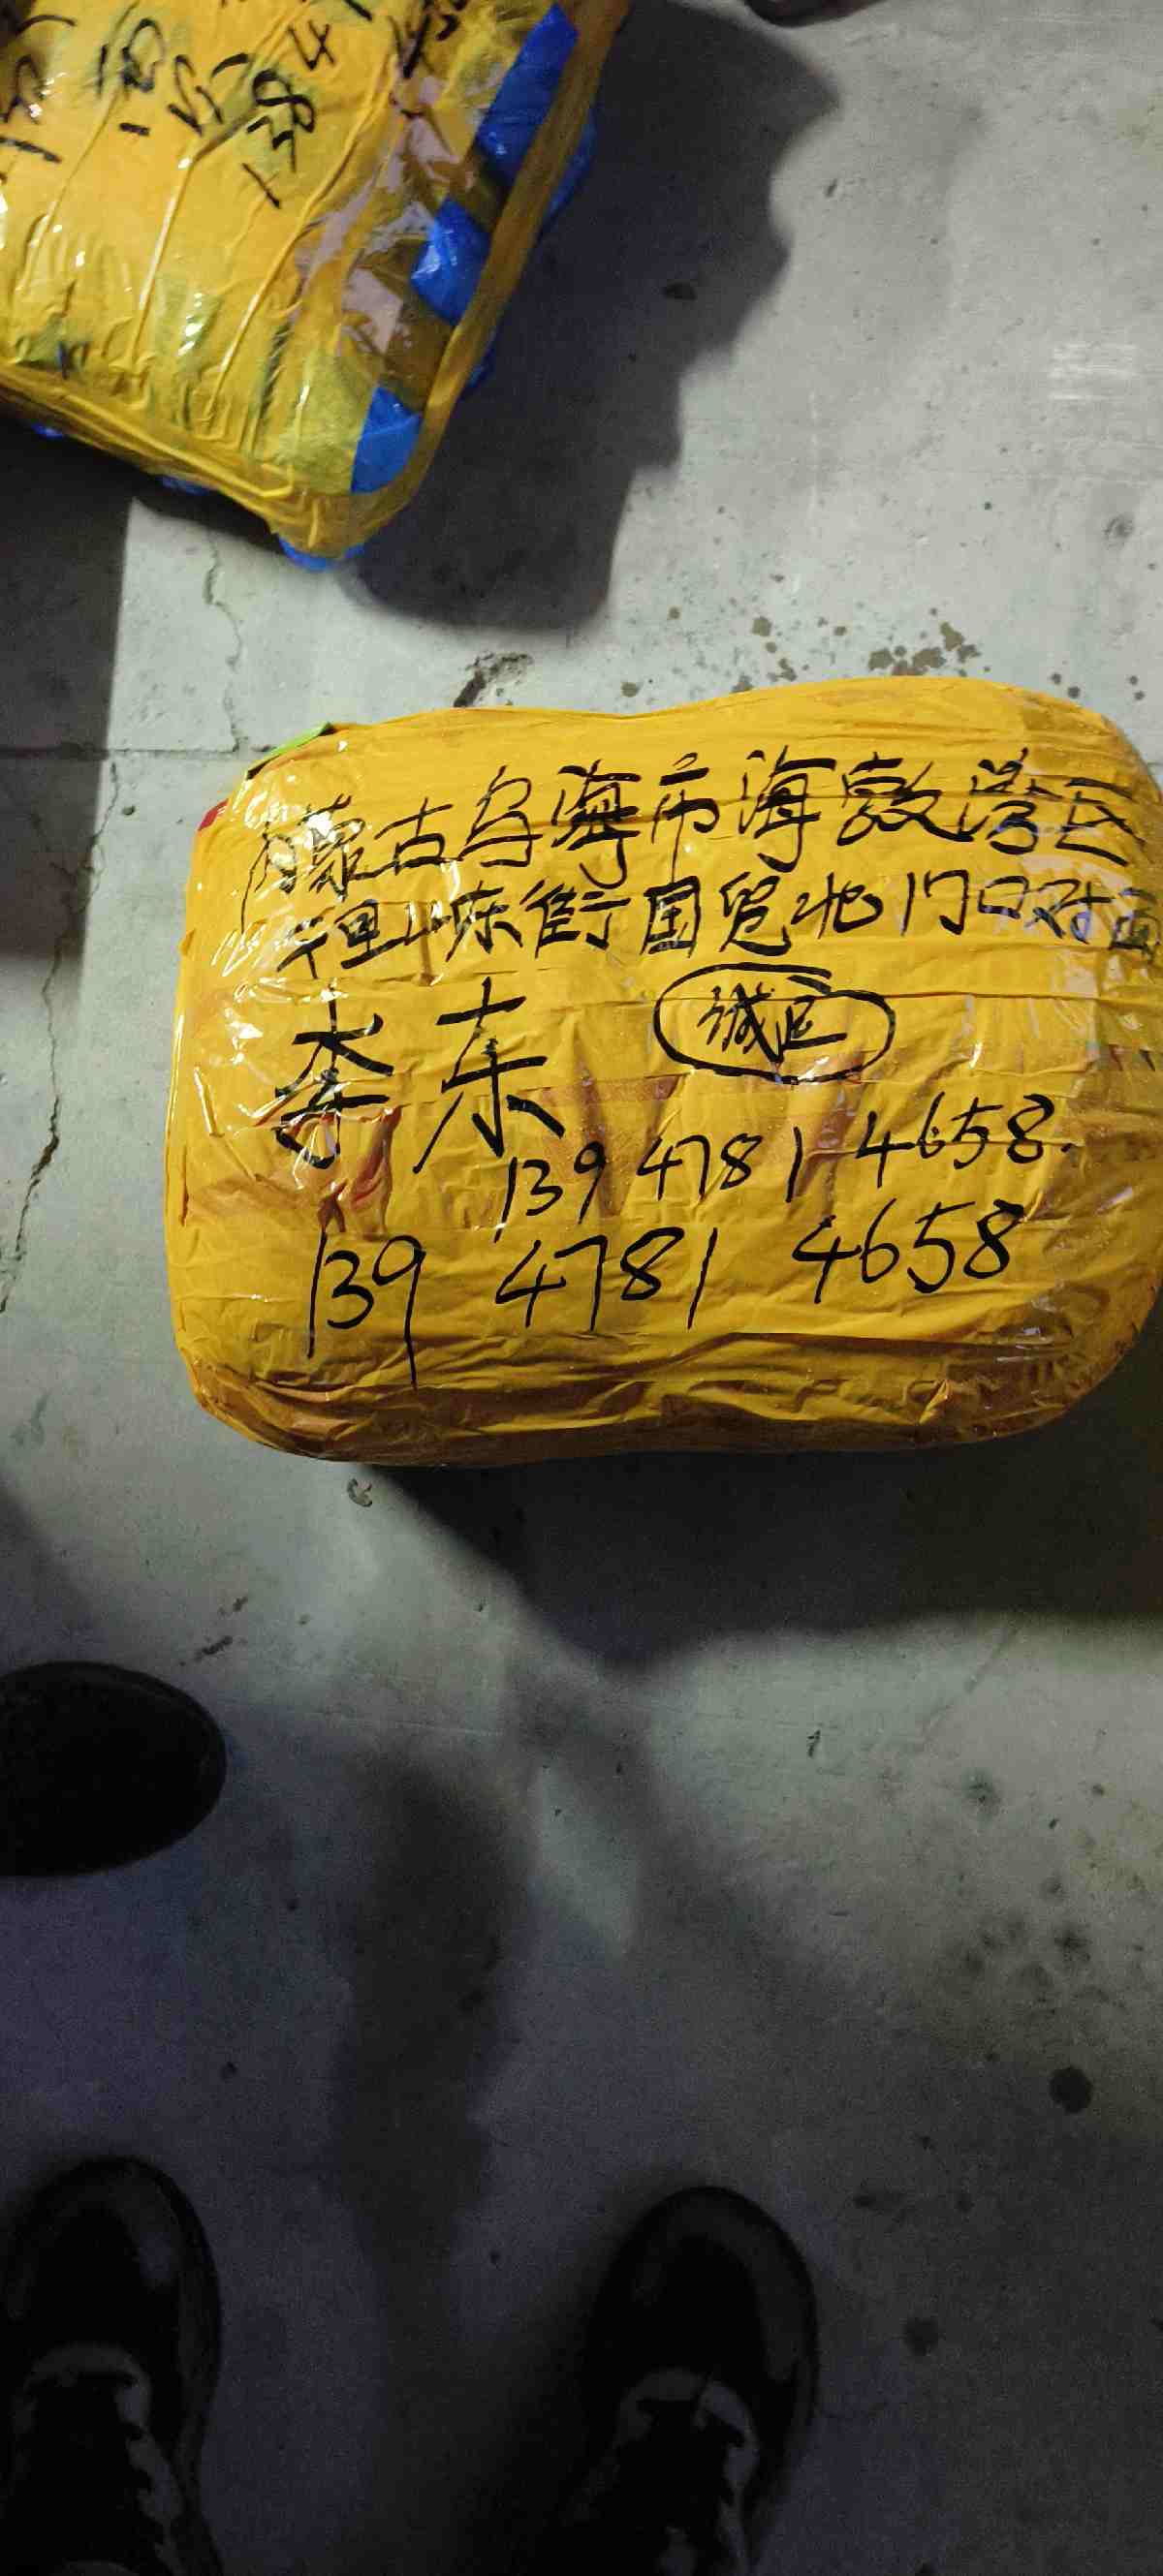 内蒙古乌海市海敦湾区
担山味街国贸北门口对面
李东
诚正
139 4781 4658.
139 4781 4658